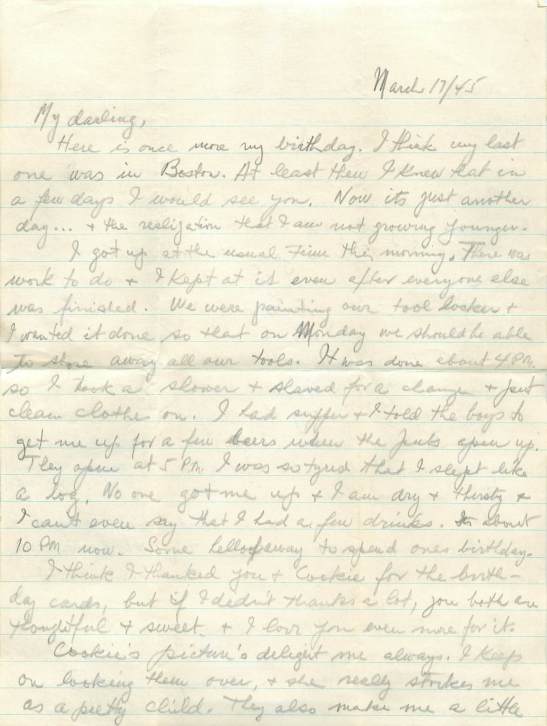 March 17/45
My darling,
Here is once more my birthday. I think my last
one was in Boston. At least then I knew that in
a few days I would see you. Now its just another
day... + the realization that I am not growing younger.
I got up at the usual time this morning. There was
work to do + I kept at it even after everyone else
was finished. We were painting our tool locker +
I wanted it done so that on Monday we should be able
to store away all our tools. It was done about 4 PM.
so I took a shower + shaved for a change + put
clean clothes on. I had supper + I told the boys to
get me up for a few beers when the Junks open up.
They open at 5 PM. I was so tyred that I slept like
a log. No one got me up + I am dry + thirsty +
I can't even say that I had a few drinks. Its about
10 PM now. Some hellofaway to spend ones birthday.
I think I thanked you + Cookie for the birth-
day cards, but if I didn't thanks a lot, you both are
thoughtful + sweet. + I love you even more for it.
Cookie's picture's delight me always. I keep
on looking them over, + she really strikes me
as a pretty child. They also make me a little